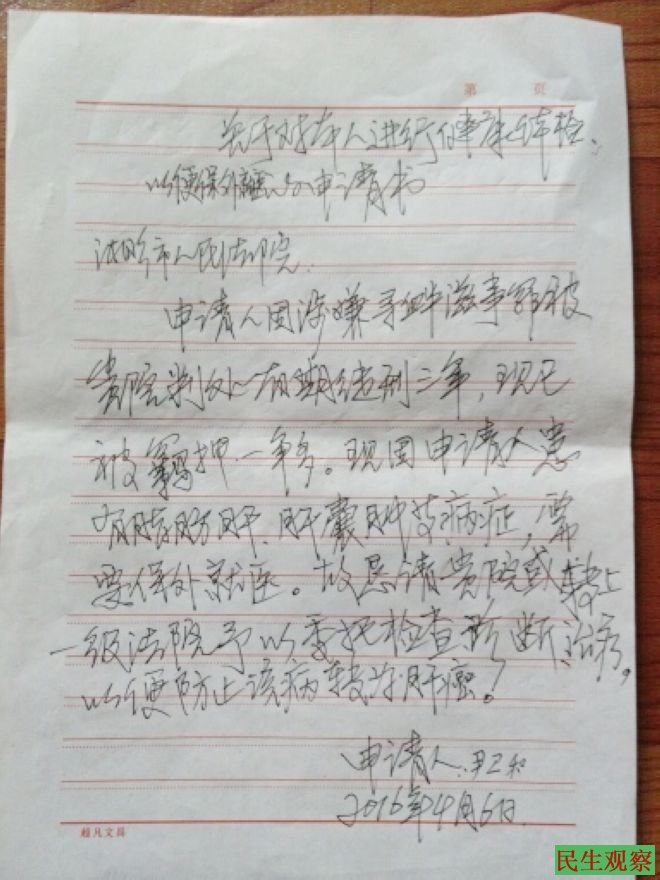 第 页
关于对本人进行健康体检,
以便保外就医的申请书
武冈市人民法院:
申请人因涉嫌寻衅滋事罪被
贵院判处有期徒刑三年,现已
被羁押一年多。现因申请人患
有脂肪肝、肝囊肿等病症,需
要保外就医。故恳请贵院或转上
一级法院予以委托检查诊断治疗,
以便防止该病转为肝癌!
申请人:尹正和
2016年4月6日.
超凡文具
民生观察